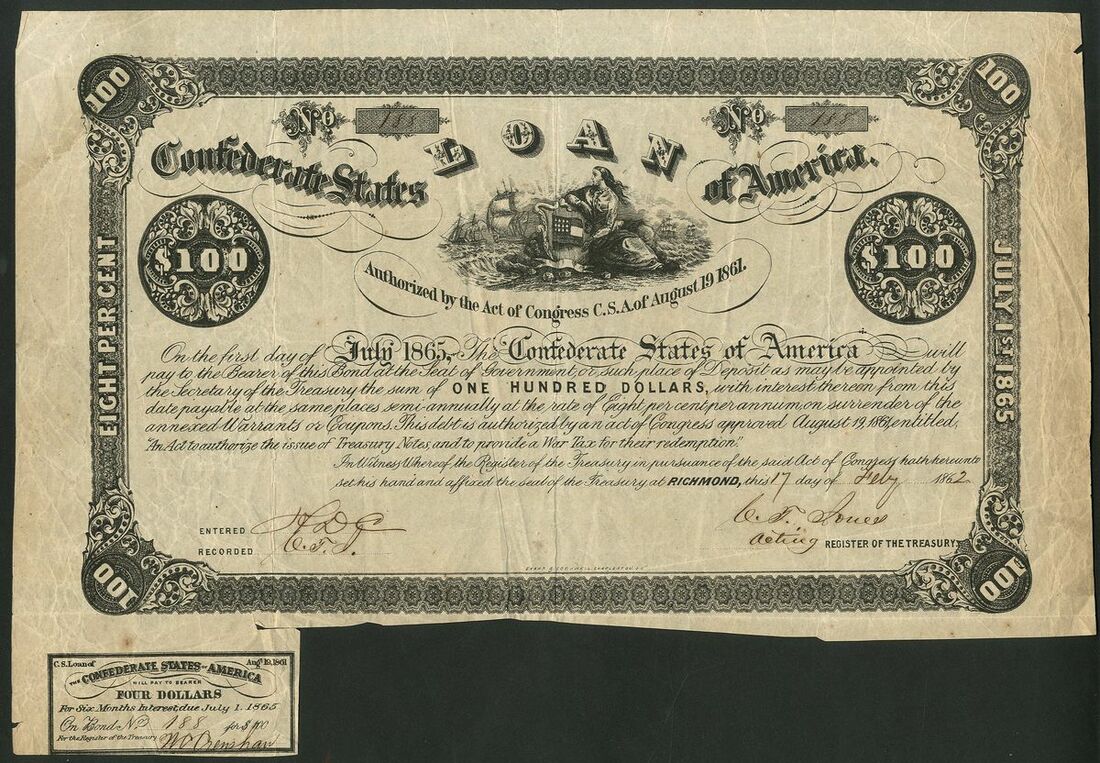 100
100
No 188
No 188
LOAN
Confederate States
of America.
$100
$100
EIGHT PER CENT
JULY 1ST 1865
Authorized by the Act of Congress C.S.A. of August 19 1861.
On the first day of July 1865, The Confederate States of America will
pay to the Bearer of this Bond at the Seat of Government, or such place of Deposit as may be appointed by
the Secretary of the Treasury the sum of ONE HUNDRED DOLLARS, with interest thereon from this
date payable at the same places semi-annually at the rate of Eight per cent per annum, on surrender of the
annexed Warrants or Coupons. This debt is authorized by an act of Congress approved August 19, 1861, entitled,
"An Act to authorize the issue of Treasury Notes, and to provide a War Tax for their redemption."
In Witness Whereof the Register of the Treasury in pursuance of the said Act of Congress hath hereunto
set his hand and affixed the seal of the Treasury at RICHMOND, this 17 day of Feby 1862
ENTERED
C. T. Jones
RECORDED C.T.J.
acting REGISTER OF THE TREASURY.
EVANS & COGSWELL, CHARLESTON
100
100
C.S. Loan of Augt. 19, 1861
THE CONFEDERATE STATES OF AMERICA
WILL PAY TO BEARER
FOUR DOLLARS
For Six Months Interest, due July 1. 1865
On Bond No. 188 for $100
For the Register of the Treasury